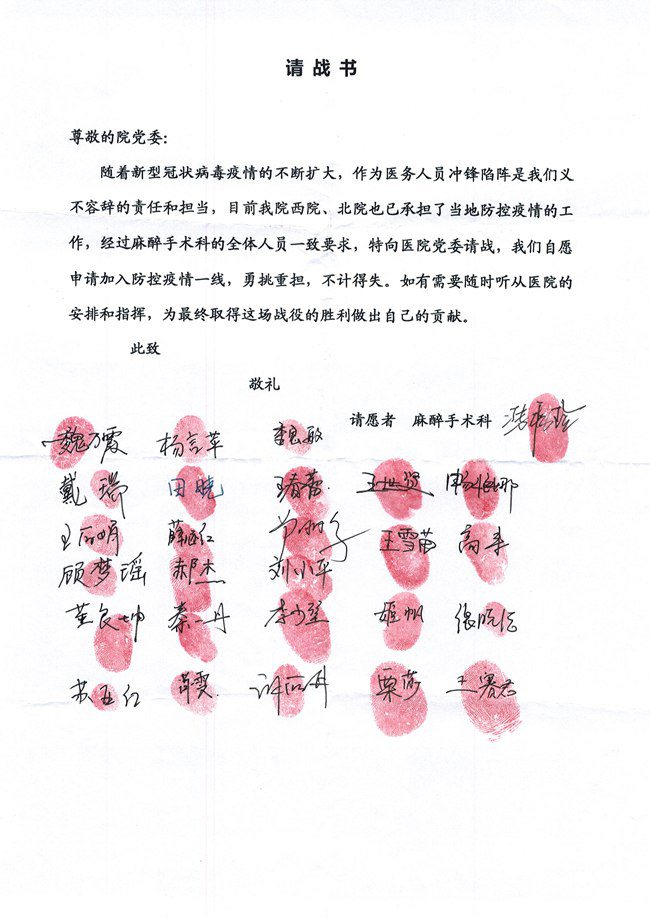 请战书
尊敬的院党委：
随着新型冠状病毒疫情的不断扩大，作为医务人员冲锋陷阵是我们义
不容辞的责任和担当，目前我院西院、北院也已承担了当地防控疫情的工
作，经过麻醉手术科的全体人员一致要求，特向医院党委请战，我们自愿
申请加入防控疫情一线，勇挑重担，不计得失。如有需要随时听从医院的
安排和指挥，为最终取得这场战役的胜利做出自己的贡献。
此致
敬礼
请愿者 麻醉手术科
魏乃霞 杨言苹
戴瑞 田晓 王春蕾
王雪苗
顾梦瑶 郝杰 刘小平
秦一丹 姬帆
栗莎